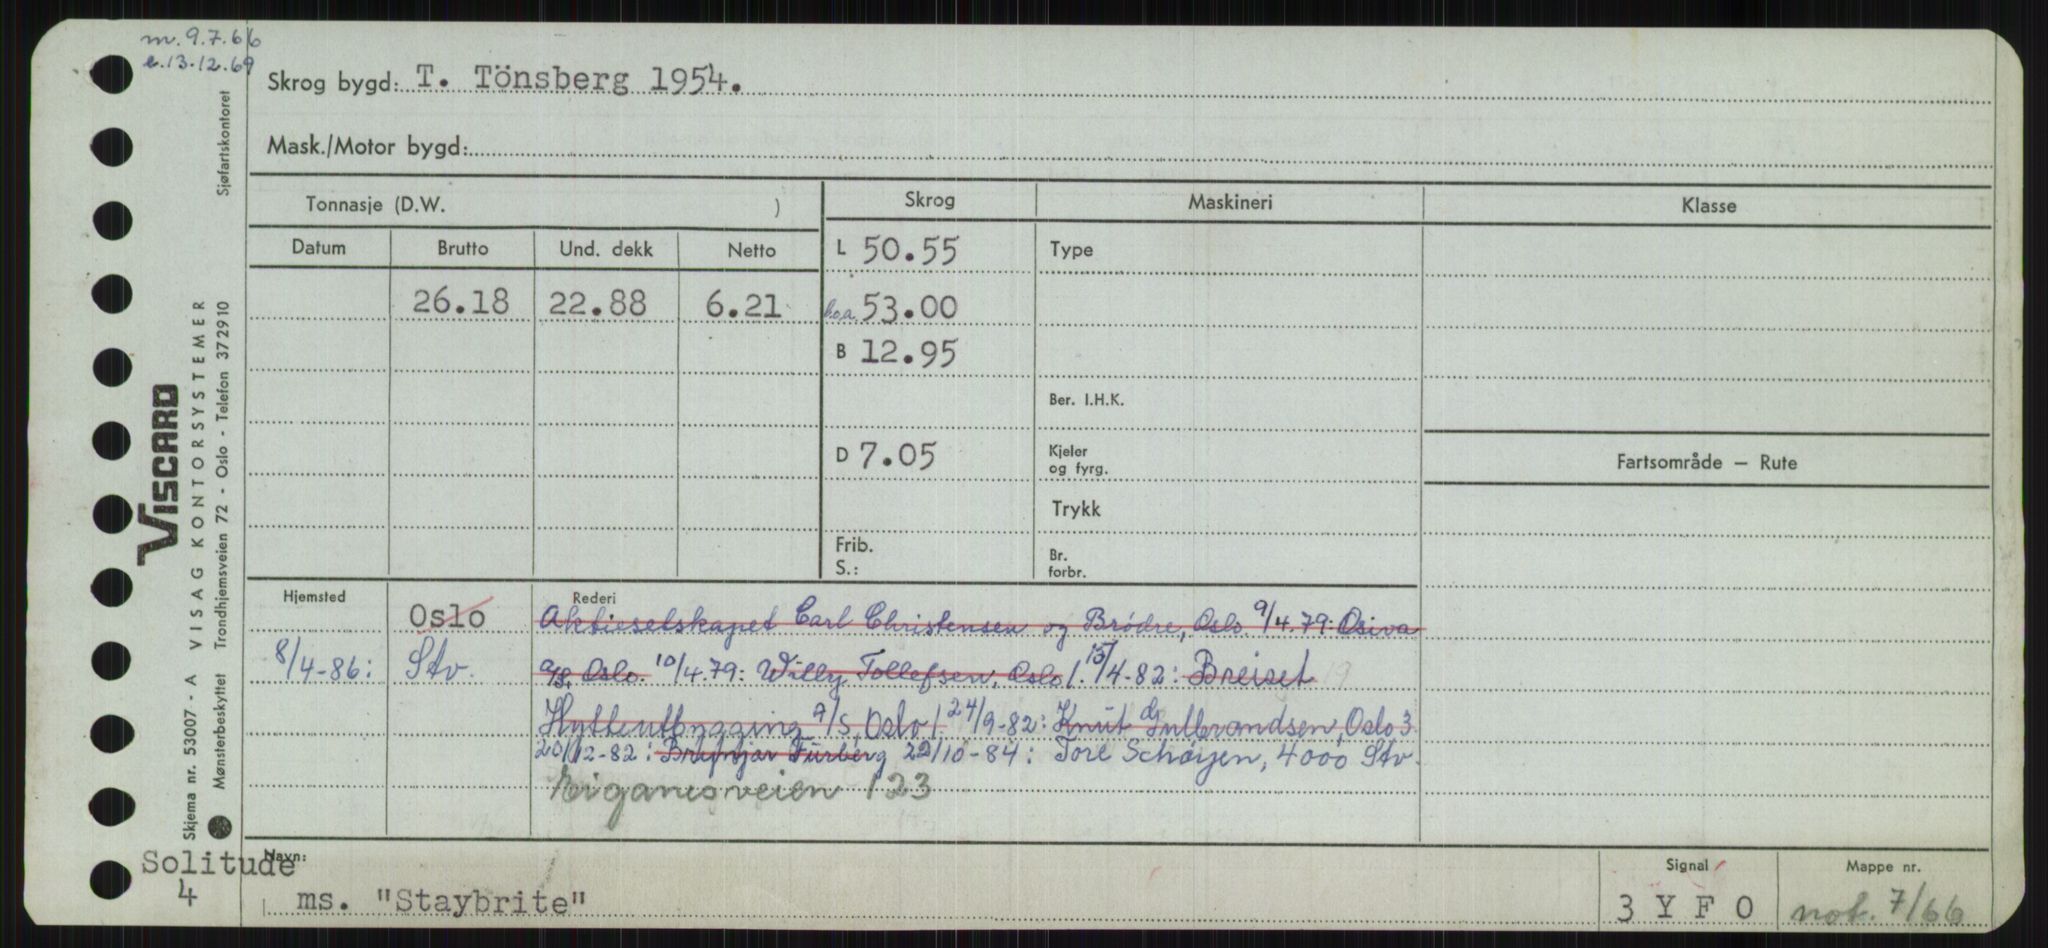 m. 9.7.66
e. 13.12.69
Skrog bygd: T. Tönsberg 1954.
Mask./Motor bygd:
Tonnasje (D.W. )
Skrog
Maskineri
Klasse
Datum
Brutto
Und. dekk
Netto
L 50.55
Type
26.18
22.88
6.21
l.o.a. 53.00
B 12.95
Ber. I.H.K.
D 7.05
Kjeler
og fyrg.
Fartsområde — Rute
Trykk
Frib.
S.:
Br.
forbr.
Hjemsted
Oslo
Rederi
Aktieselskapet Carl Christensen og Brödre, Oslo. 9/4.79: Osiva
8/4-86:
Stv.
A/S, Oslo. 10/4.79: Willy Tollefsen, Oslo /. 15/4-82: Breiset
Hytteutbygging A/S, Oslo /. 24/9-82: Knut Gulbrandsen, Oslo 3
20/12-82: Furberg 22/10-84: Tore Schøyen, 4000 Stv.
Eiganesveien 123
Solitude
4
Navn:
ms. "Staybrite"
Signal
3 Y F O
Mappe nr.
not. 7/66
VISCARD
VISAG KONTORSYSTEMER
Trondhjemsveien 72 - Oslo - Telefon 372910
Skjema nr. 53007 - A
Mønsterbeskyttet
Sjøfartskontoret